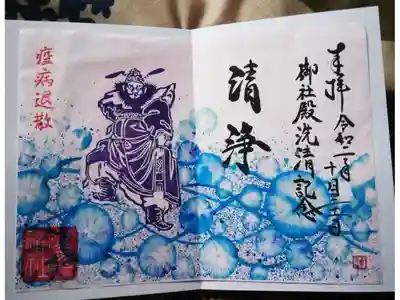 奉拝 令和二年十月
御社殿洗清記念
清浄
疫病退散